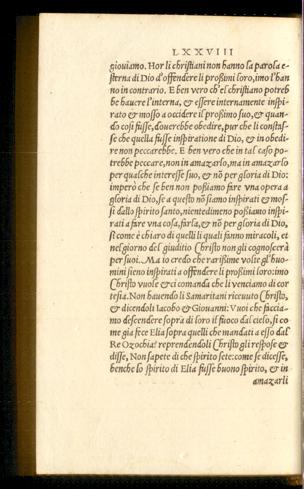 LXXVIII
giouiamo. Hor li christiani non hanno la parola e-
sterna di Dio d'offendere li proßimi loro, imo l'han
no in contrario. E ben vero ch'el christiano potreb
be hauere l'interna, & essere internamente inspi-
rato & mosso a occidere il proßimo suo, & quan-
do cosi fusse, douerebbe obedire, pur che li constas-
se che quella fusse inspiratione di Dio, & in obedi-
re non peccarebbe. E ben vero che in tal caso po-
trebbe peccare, non in amazarlo, ma in amazarlo
per qualche interesse suo, & nõ per gloria di Dio:
imperò che se ben non poßiamo fare vna opera a
gloria di Dio, se a questo nõ siamo inspirati & mos-
si dallo spirito santo, nientedimeno poßiamo inspi-
rati a fare vna cosa, farla, & nõ per gloria di Dio,
si come è chiaro di quelli quali fanno miracoli, et
nel giorno del giuditio Christo non gli cognoscerà
per suoi. Ma io credo che rarißime volte gl'huo-
mini sieno inspirati a offendere li proßimi loro: imo
Christo vuole & ci comanda che li venciamo di cor
tesia. Non hauendo li Samaritani riceuuto Christo,
& dicendoli Iacobo & Giouanni: Vuoi che faccia-
mo descendere sopra di loro il fuoco dal cielo, si co
me gia fece Elia sopra quelli che mandati a esso dal
Re Ozochia? reprendendoli Christo gli respose &
disse, Non sapete di che spirito sete: come se dicesse,
benche lo spirito di Elia fusse buono spirito, & in
amazarli